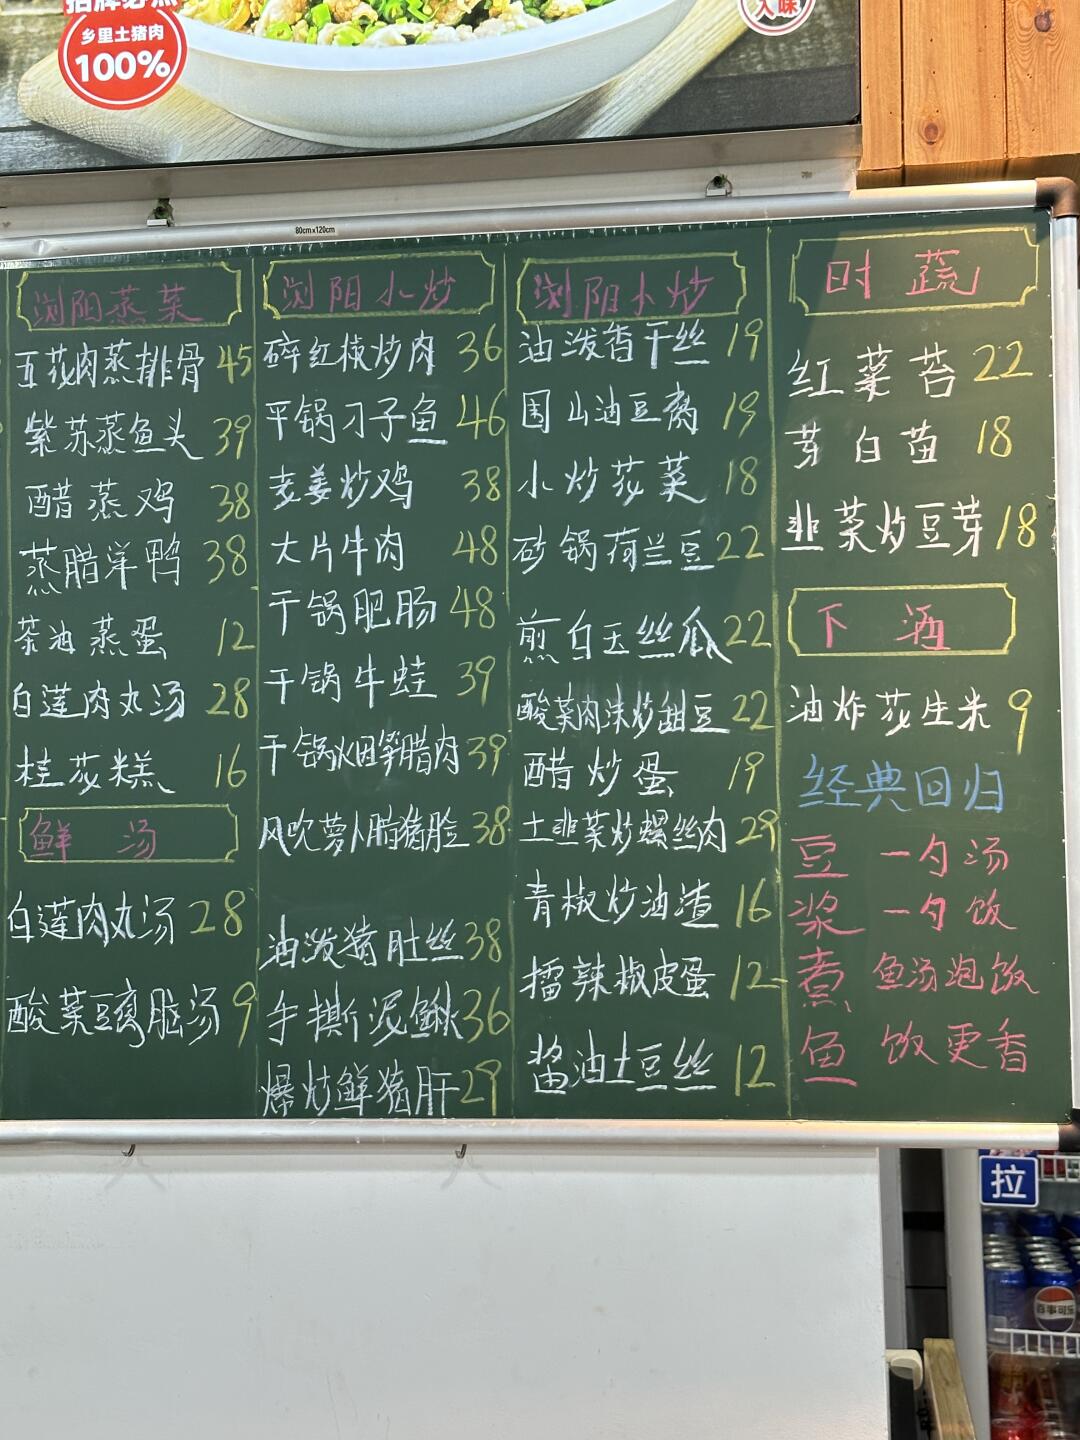 招牌必点
乡里土猪肉
100%
入味
80cm x 120cm
浏阳蒸菜
五花肉蒸排骨 45
紫苏蒸鱼头 39
醋蒸鸡 38
蒸腊洋鸭 38
茶油蒸蛋 12
白莲肉丸汤 28
桂花糕 16
鲜汤
白莲肉丸汤 28
酸菜豆腐脑汤 9
浏阳小炒
碎红椒炒肉 36
平锅刁子鱼 46
老姜炒鸡 38
大片牛肉 48
干锅肥肠 48
干锅牛蛙 39
干锅火田笋腊肉 39
风吹萝卜腊猪脸 38
油泼猪肚丝 38
手撕泥鳅 36
爆炒鲜猪肝 29
浏阳小炒
油泼香干丝 19
围山油豆腐 19
小炒花菜 18
砂锅荷兰豆 22
煎白玉丝瓜 22
酸菜肉沫炒甜豆 22
醋炒蛋 19
土韭菜炒螺丝肉 29
青椒炒油渣 16
擂辣椒皮蛋 12
酱油土豆丝 12
时蔬
红菜苔 22
芽白苗 18
韭菜炒豆芽 18
下酒
油炸花生米 9
经典回归
豆 一勺汤
浆 一勺饭
煮 鱼汤泡饭
鱼 饭更香
拉
百事可乐